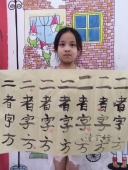 二者字方
二者字方
二者字方
二者字方
二者字方
二者字方
二者字方